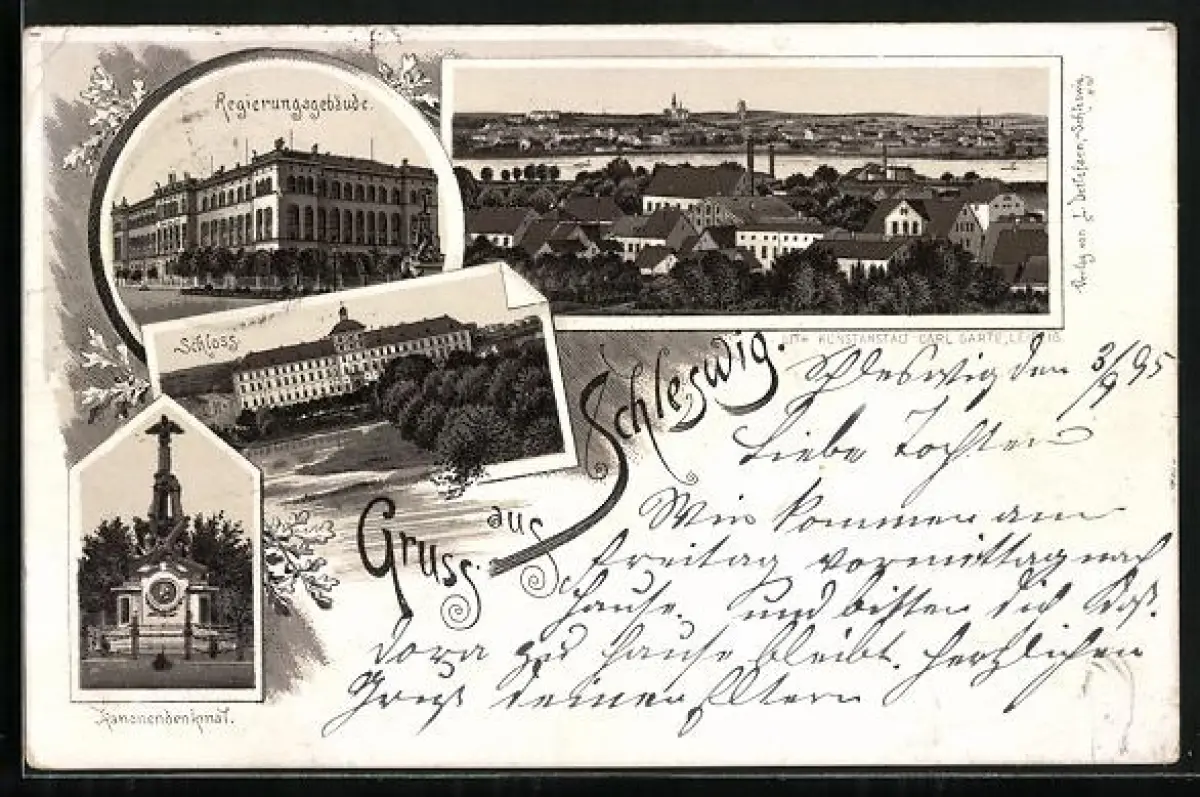 Regierungsgebäude.
Schloss
Kanonendenkmal.
Gruss aus Schleswig.
LITH. KUNSTANSTALT CARL GARTE, LEIPZIG.
Verlag von Schleswig
Schleswig den 3/9 95
Liebe Tochter
Wir kommen am
Freitag vormittag nach
Hause. und bitten dich daß
Dora zu Hause bleibt. herzlichen
Gruß deine Eltern